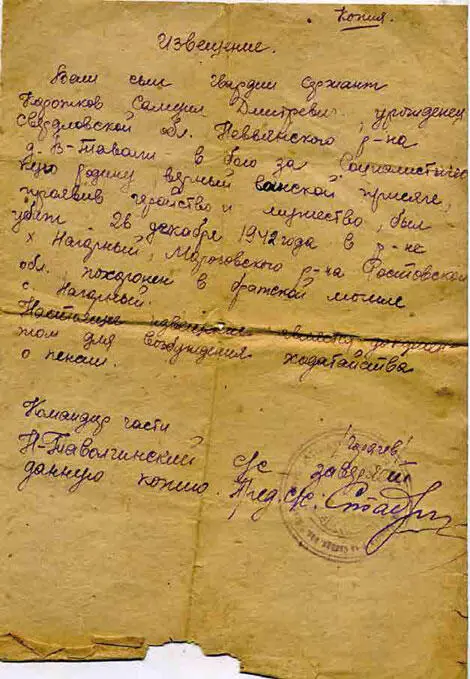 Копия.
Извещение.
Ваш сын гвардии сержант
Коротков Самуил Дмитревич уроженец
Свердловской обл. Невьянского р-на
д. В-Таволги в бою за Социалистичес
кую родину, верный воинской присяге,
проявив геройство и мужество, был
убит 26 декабря 1942 года в р-не
х Нагорный, Морозовского р-на Ростовской
обл., похоронен в братской могиле
с. Нагорный.
Настоящее извещение является докумен
том для возбуждения ходатайства
о пенсии.
Командир части
Н-Таволгинский с/с заверяет
данную копию. Пред. с/с.